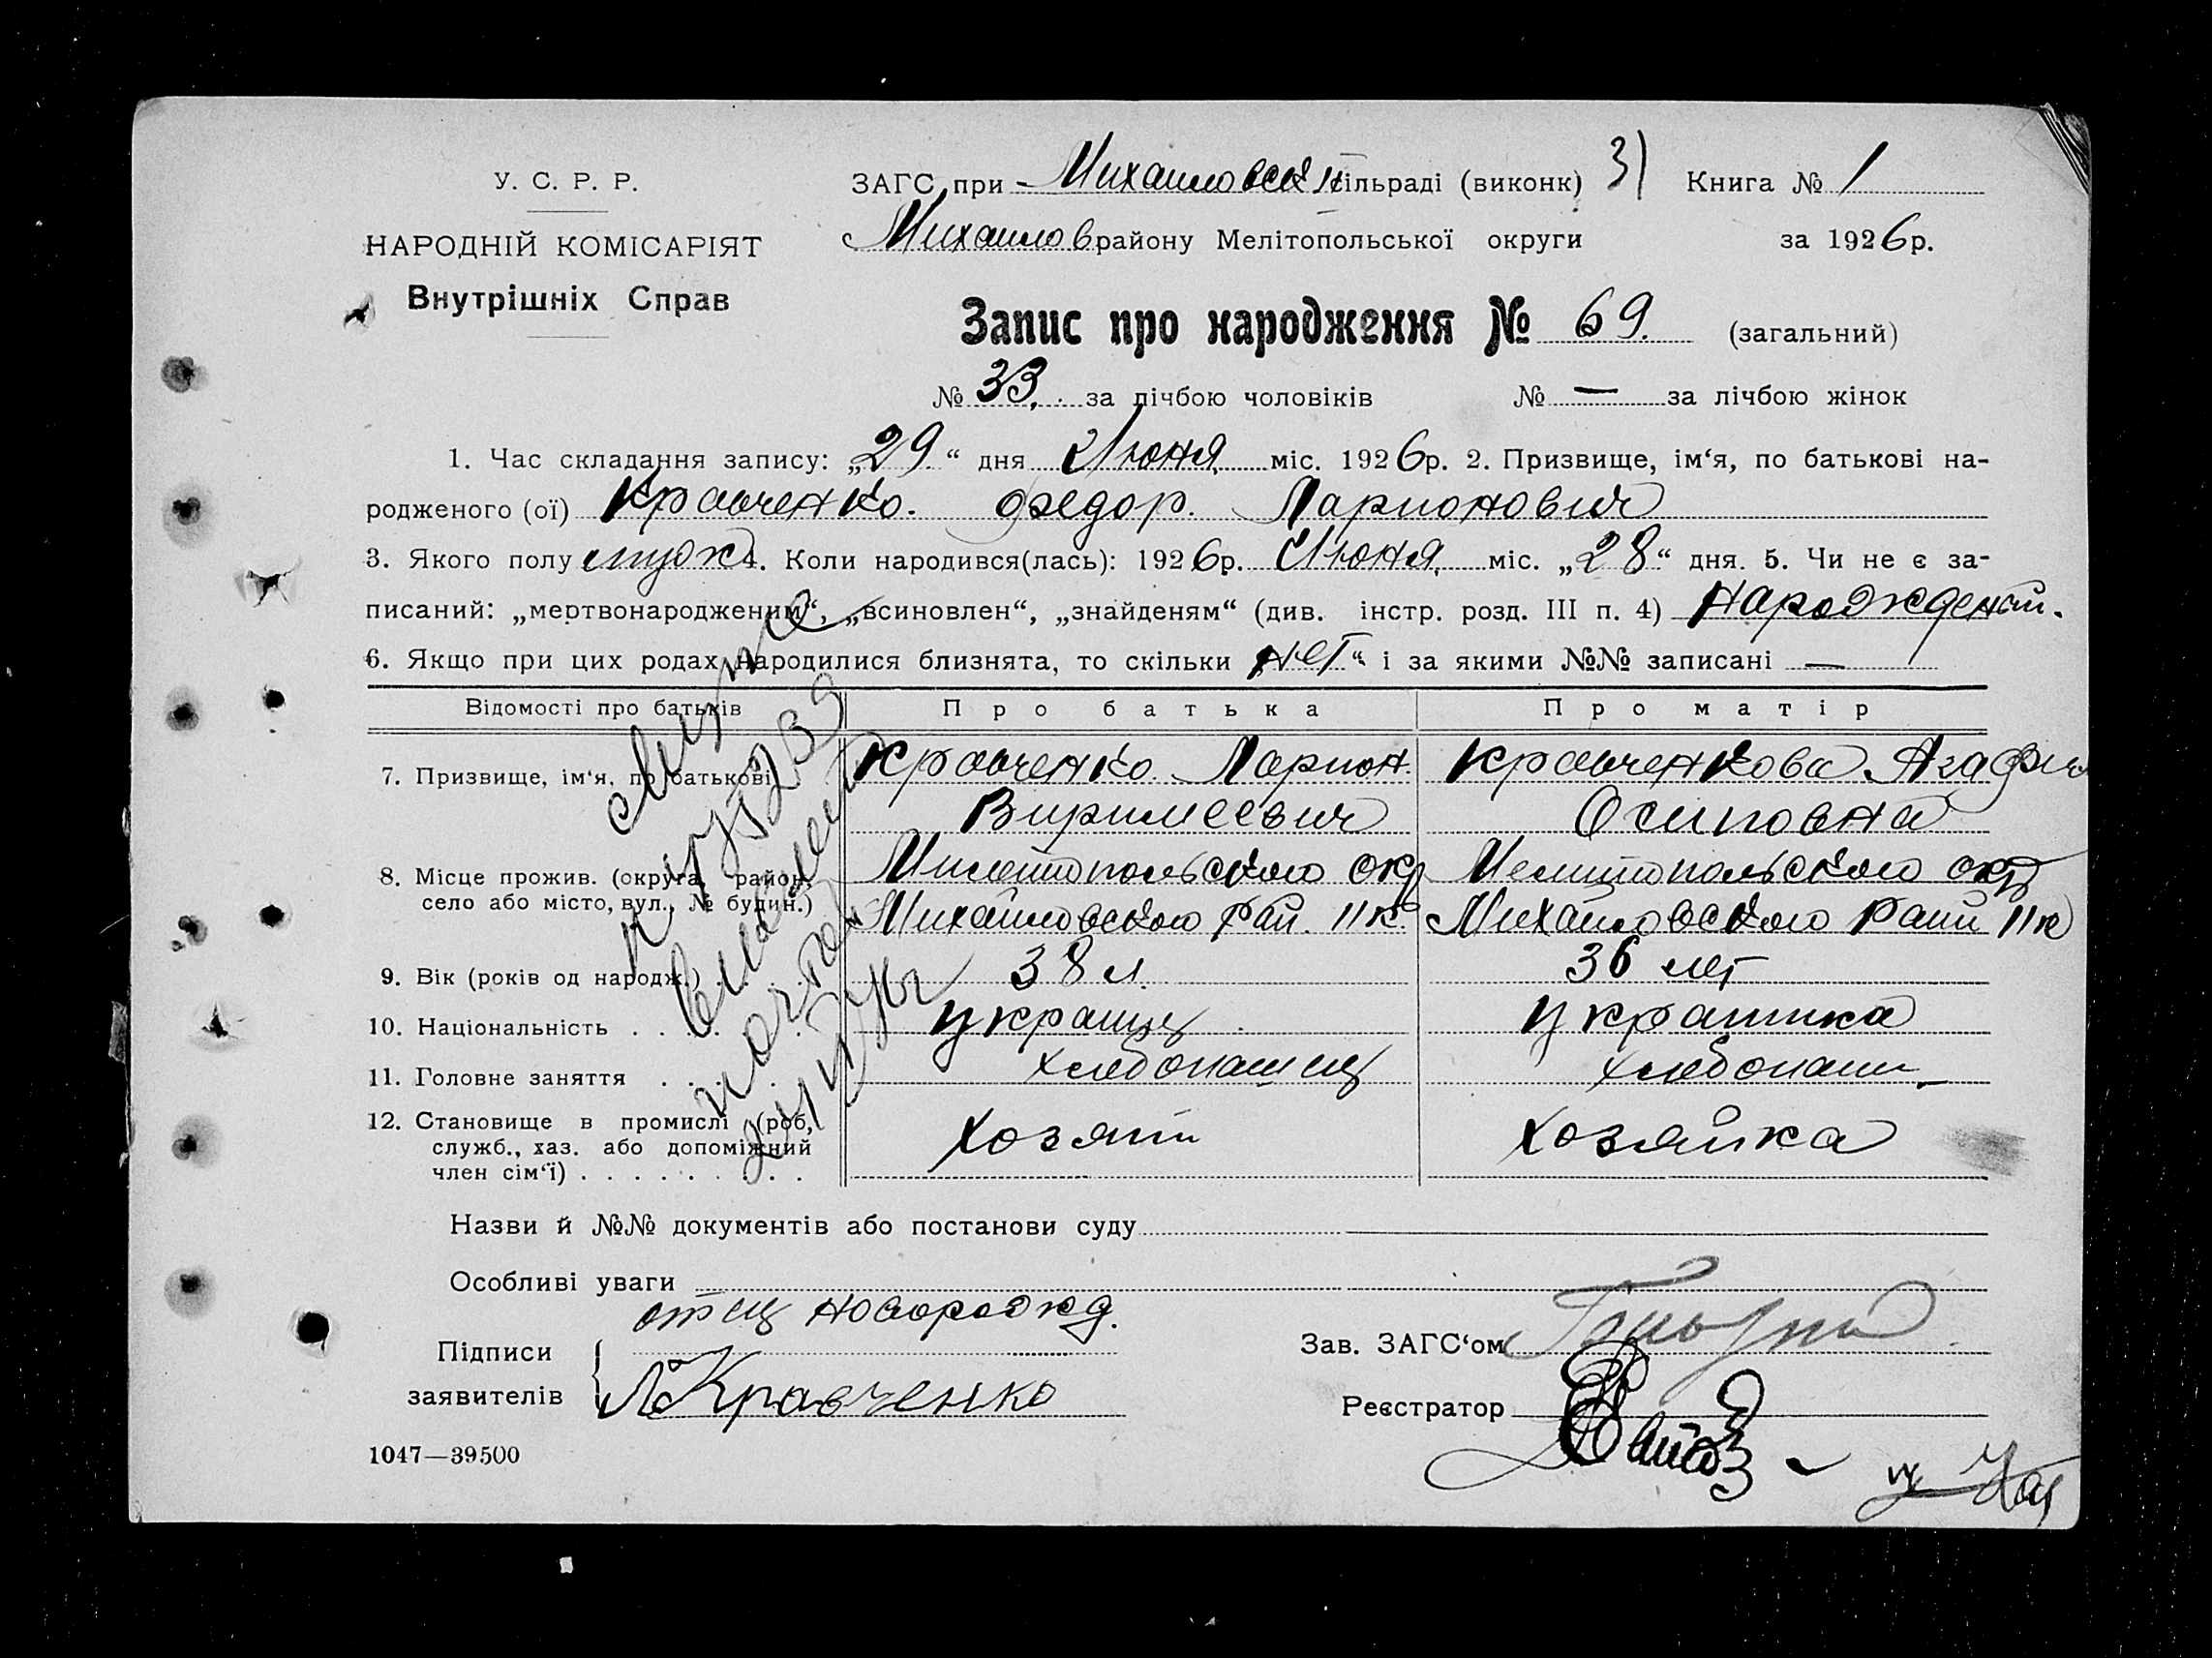 У. С. Р. Р.
НАРОДНІЙ КОМІСАРІЯТ
Внутрішніх Справ
ЗАГС при Михайловск II сільраді (виконк) 31 Книга № 1
Михайлов району Мелітопольської округи за 1926 р.
Запис про народження № 69. (загальний)
№ 33. за лічбою чоловіків № — за лічбою жінок
1. Час складання запису: „29“ дня Июня міс. 1926 р. 2. Призвище, ім‘я, по батькові на-
родженого (ої) Кравченко. Федор. Ларионович
3. Якого полу муж 4. Коли народився(лась): 1926 р. Июня, міс. „28“ дня. 5. Чи не є за-
писаний: „мертвонародженим“, „всиновлен“, „знайденям“ (див. інстр. розд. III п. 4)
6. Якщо при цих родах народилися близнята, то скільки „нет“ і за якими №№ записані —
Відомості про батьків Про батька Про матір
7. Призвище, ім‘я, по батькові Кравченко Ларион. Кравченкова Агафия
Осиповна
8. Місце прожив. (округа, район, Милитопольского окр Мелитопольского окр
село або місто, вул., № будин.) Михайловского рай. II к. Михайловского рай II к
9. Вік (років од народж.) 38 л. 36 лет
10. Національність . . . украинц украинка
11. Головне заняття . . . хлебопашец хлебопаш
12. Становище в промислі (роб, хозяин хозяйка
служб., хаз. або допоміжний
член сім‘ї) . . . . . . . . .
Назви й №№ документів або постанови суду
Особливі уваги
отец новорожд.
Підписи
Зав. ЗАГС‘ом
заявителів Л Кравченко
Реєстратор
1047—39500